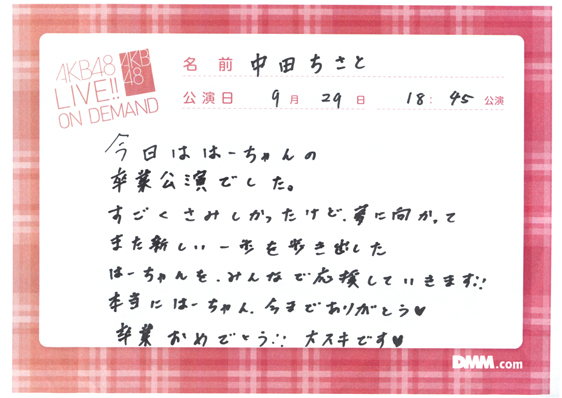 AKB48
LIVE!!
ON DEMAND
AKB
48
名前 中田ちさと
公演日 9月 29日 18:45 公演
今日ははーちゃんの
卒業公演でした。
すごくさみしかったけど、夢に向かって
また新しい一歩を歩き出した
はーちゃんを、みんなで応援していきます!!
本当にはーちゃん、今までありがとう♥
卒業おめでとう!! 大スキです♥
DMM.com